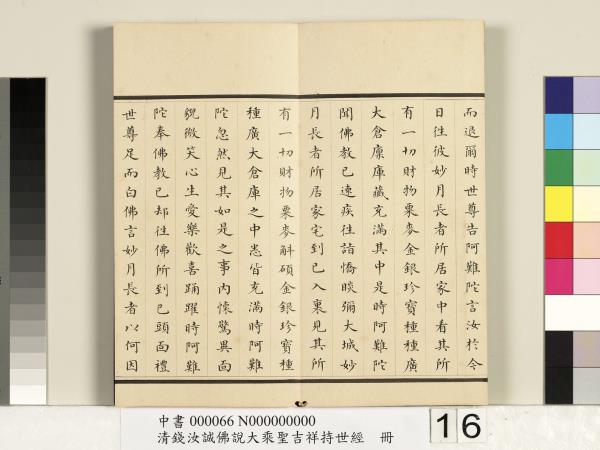 而退爾時世尊告阿難陀言汝於今
日往彼妙月長者所居家中看其所
有一切財物粟麥金銀珍寶種種廣
大倉廩庫藏充滿其中是時阿難陀
聞佛教已速疾往詣憍睒彌大城妙
月長者所居家宅到已入裏見其所
有一切財物粟麥斛碩金銀珍寶種
種廣大倉庫之中悉皆充滿時阿難
陀忽然見其如是之事內懷驚異面
貌微笑心生愛樂歡喜踊躍時阿難
陀奉佛教已却往佛所到已頭面禮
世尊足而白佛言妙月長者以何因
中書 000066 N000000000
清錢汝誠佛說大乘聖吉祥持世經 冊
16